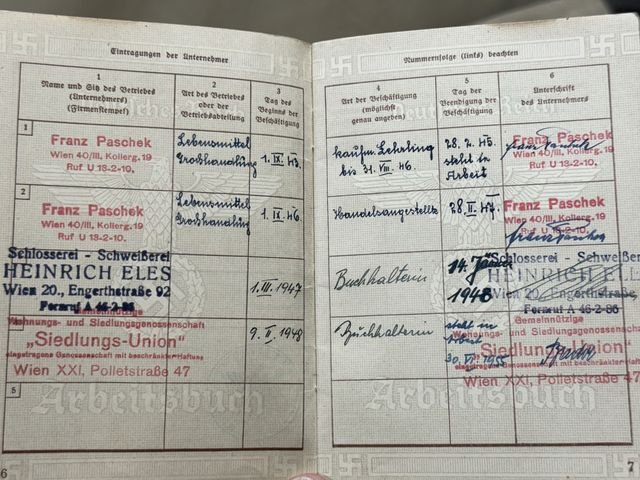 Eintragungen der Unternehmer
1
Name und Sitz des Betriebes
(Unternehmers)
(Firmenstempel)
2
Art des Betriebes
oder der
Betriebsabteilung
3
Tag des
Beginns der
Beschäftigung
1
Franz Paschek
Wien 40/III, Kollerg. 19
Ruf U 13-2-10.
Lebensmittel
Großhandlung
1. IX. 43.
2
Franz Paschek
Wien 40/III, Kollerg. 19
Ruf U 13-2-10.
Lebensmittel
Großhandlung
1. IX. 46
Schlosserei - Schweißerei
HEINRICH ELES
Wien 20., Engerthstraße 92
Fernruf A 46-2-86
1. III. 1947
Gemeinnützige
Wohnungs- und Siedlungsgenossenschaft
„Siedlungs-Union"
eingetragene Genossenschaft mit beschränkter Haftung
Wien XXI, Polletstraße 47
9. II. 1948
5
Arbeitsbuch
6
Nummernfolge (links) beachten
4
Art der Beschäftigung
(möglichst
genau angeben)
5
Tag der
Beendigung der
Beschäftigung
6
Unterschrift
des Unternehmers
kaufm. Lehrling
bis 31. VIII. 46.
28. 2. 45.
steht in
Arbeit
Franz Paschek
Wien 40/III, Kollerg. 19
Ruf U 13-2-10.
Handelsangestellte
28. II. 47.
Franz Paschek
Wien 40/III, Kollerg. 19
Ruf U 13-2-10.
Franz Paschek
Buchhalterin
14. Jänner
1948
Schlosserei - Schweißerei
HEINRICH ELES
Wien 20., Engerthstraße
Fernruf A 46-2-86
Buchhalterin
steht in
Arbeit
30. VI. 1955
Gemeinnützige
Wohnungs- und Siedlungsgenossenschaft
„Siedlungs-Union"
eingetragene Genossenschaft mit beschränkter Haftung
Wien XXI, Polletstraße 47
Arbeitsbuch
7